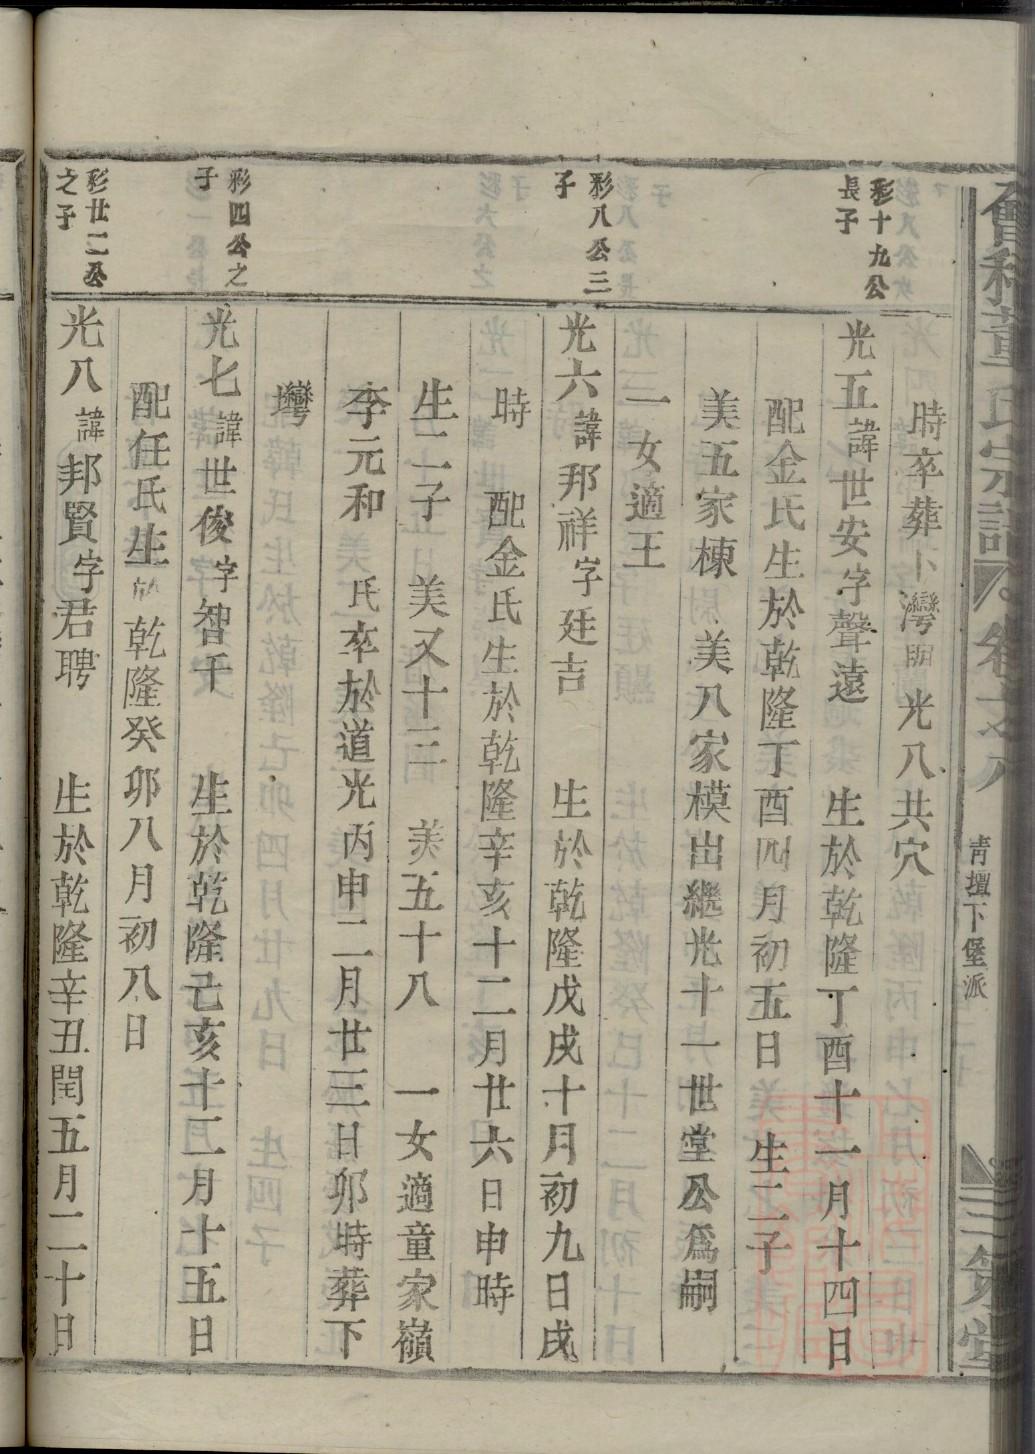 會稽董氏宗譜
卷十八
青壇下堡派
三策堂
時卒葬卜灣與光八共穴
彩十九公
長子
光五諱世安字聲遠 生於乾隆丁酉十一月十四日
配金氏生於乾隆丁酉四月初五日 生二子
美五家棟 美八家模出繼光十一世堂公爲嗣
一女適王
彩八公三
子
光六諱邦祥字廷吉 生於乾隆戊戌十月初九日戌
時 配金氏生於乾隆辛亥十二月廿六日申時
生二子 美又十三 美五十八 一女適童家嶺
李元和 氏卒於道光丙申二月廿三日卯時葬下
灣
彩四公之
子
光七諱世俊字智千 生於乾隆己亥十二月十五日
配任氏生於乾隆癸卯八月初八日
彩廿二公
之子
光八諱邦賢字君聘 生於乾隆辛丑閏五月二十日